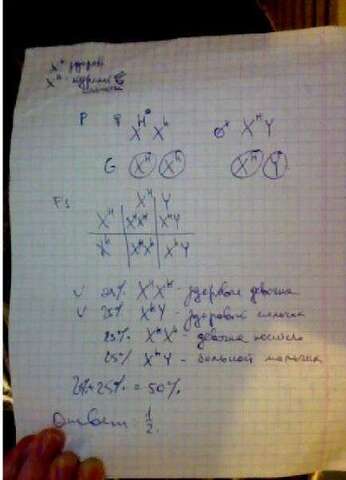 X^H - здоров
X^h -
P ♀ X^H X^h ♂ X^H Y
G X^H X^h X^H Y
F1 X^H Y
X^H X^H X^H X^H Y
X^h X^H X^h X^h Y
V 25% X^H X^H - здоровые девочки
V 25% X^H Y - здоровый мальчик
25% X^H X^h - девочка носитель
25% X^h Y - больной мальчик
25% + 25% = 50%
Ответ: 1/2.